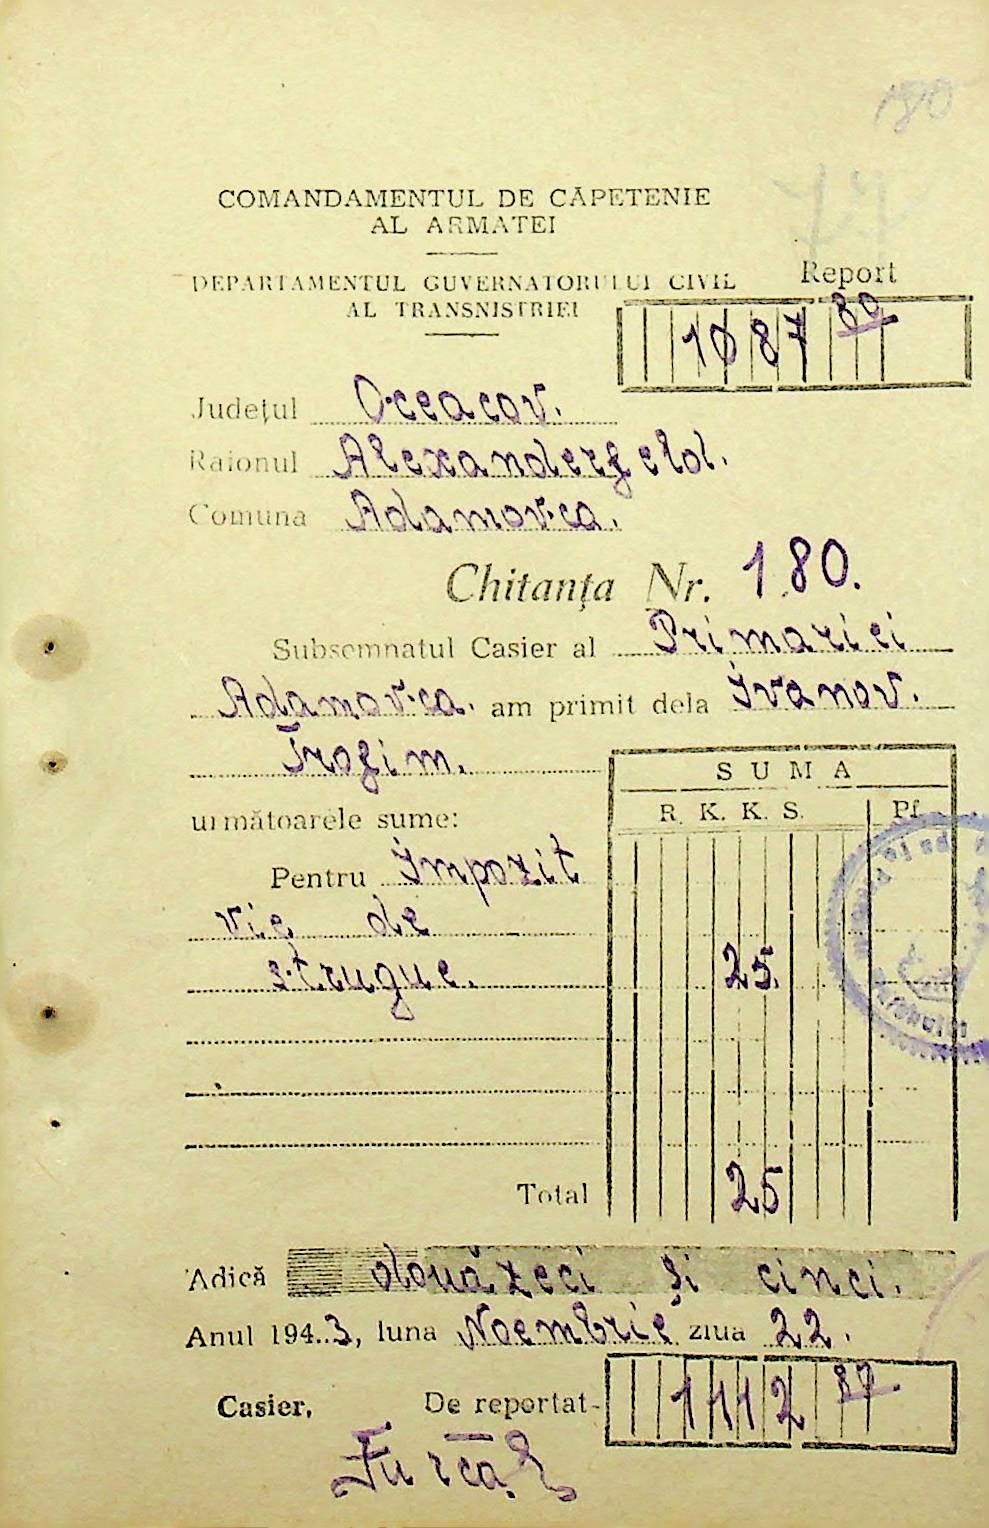 180
74
COMANDAMENTUL DE CĂPETENIE
AL ARMATEI
DEPARTAMENTUL GUVERNATORULUI CIVIL
AL TRANSNISTRIEI
Report
1087 80
Județul Oceacov.
Raionul Alexanderfeld.
Comuna Adamovca.
Chitanța Nr. 180.
Subsemnatul Casier al Primariei
Adamovca. am primit dela Ivanov.
Trofim.
SUMA
R. K. K. S. Pf.
următoarele sume:
Pentru Impozit
vie de
strugue. 25.
Total 25
Adică douăzeci și cinci.
Anul 194..3, luna Noembrie ziua 22.
Casier, De reportat- 1112 87
Furca